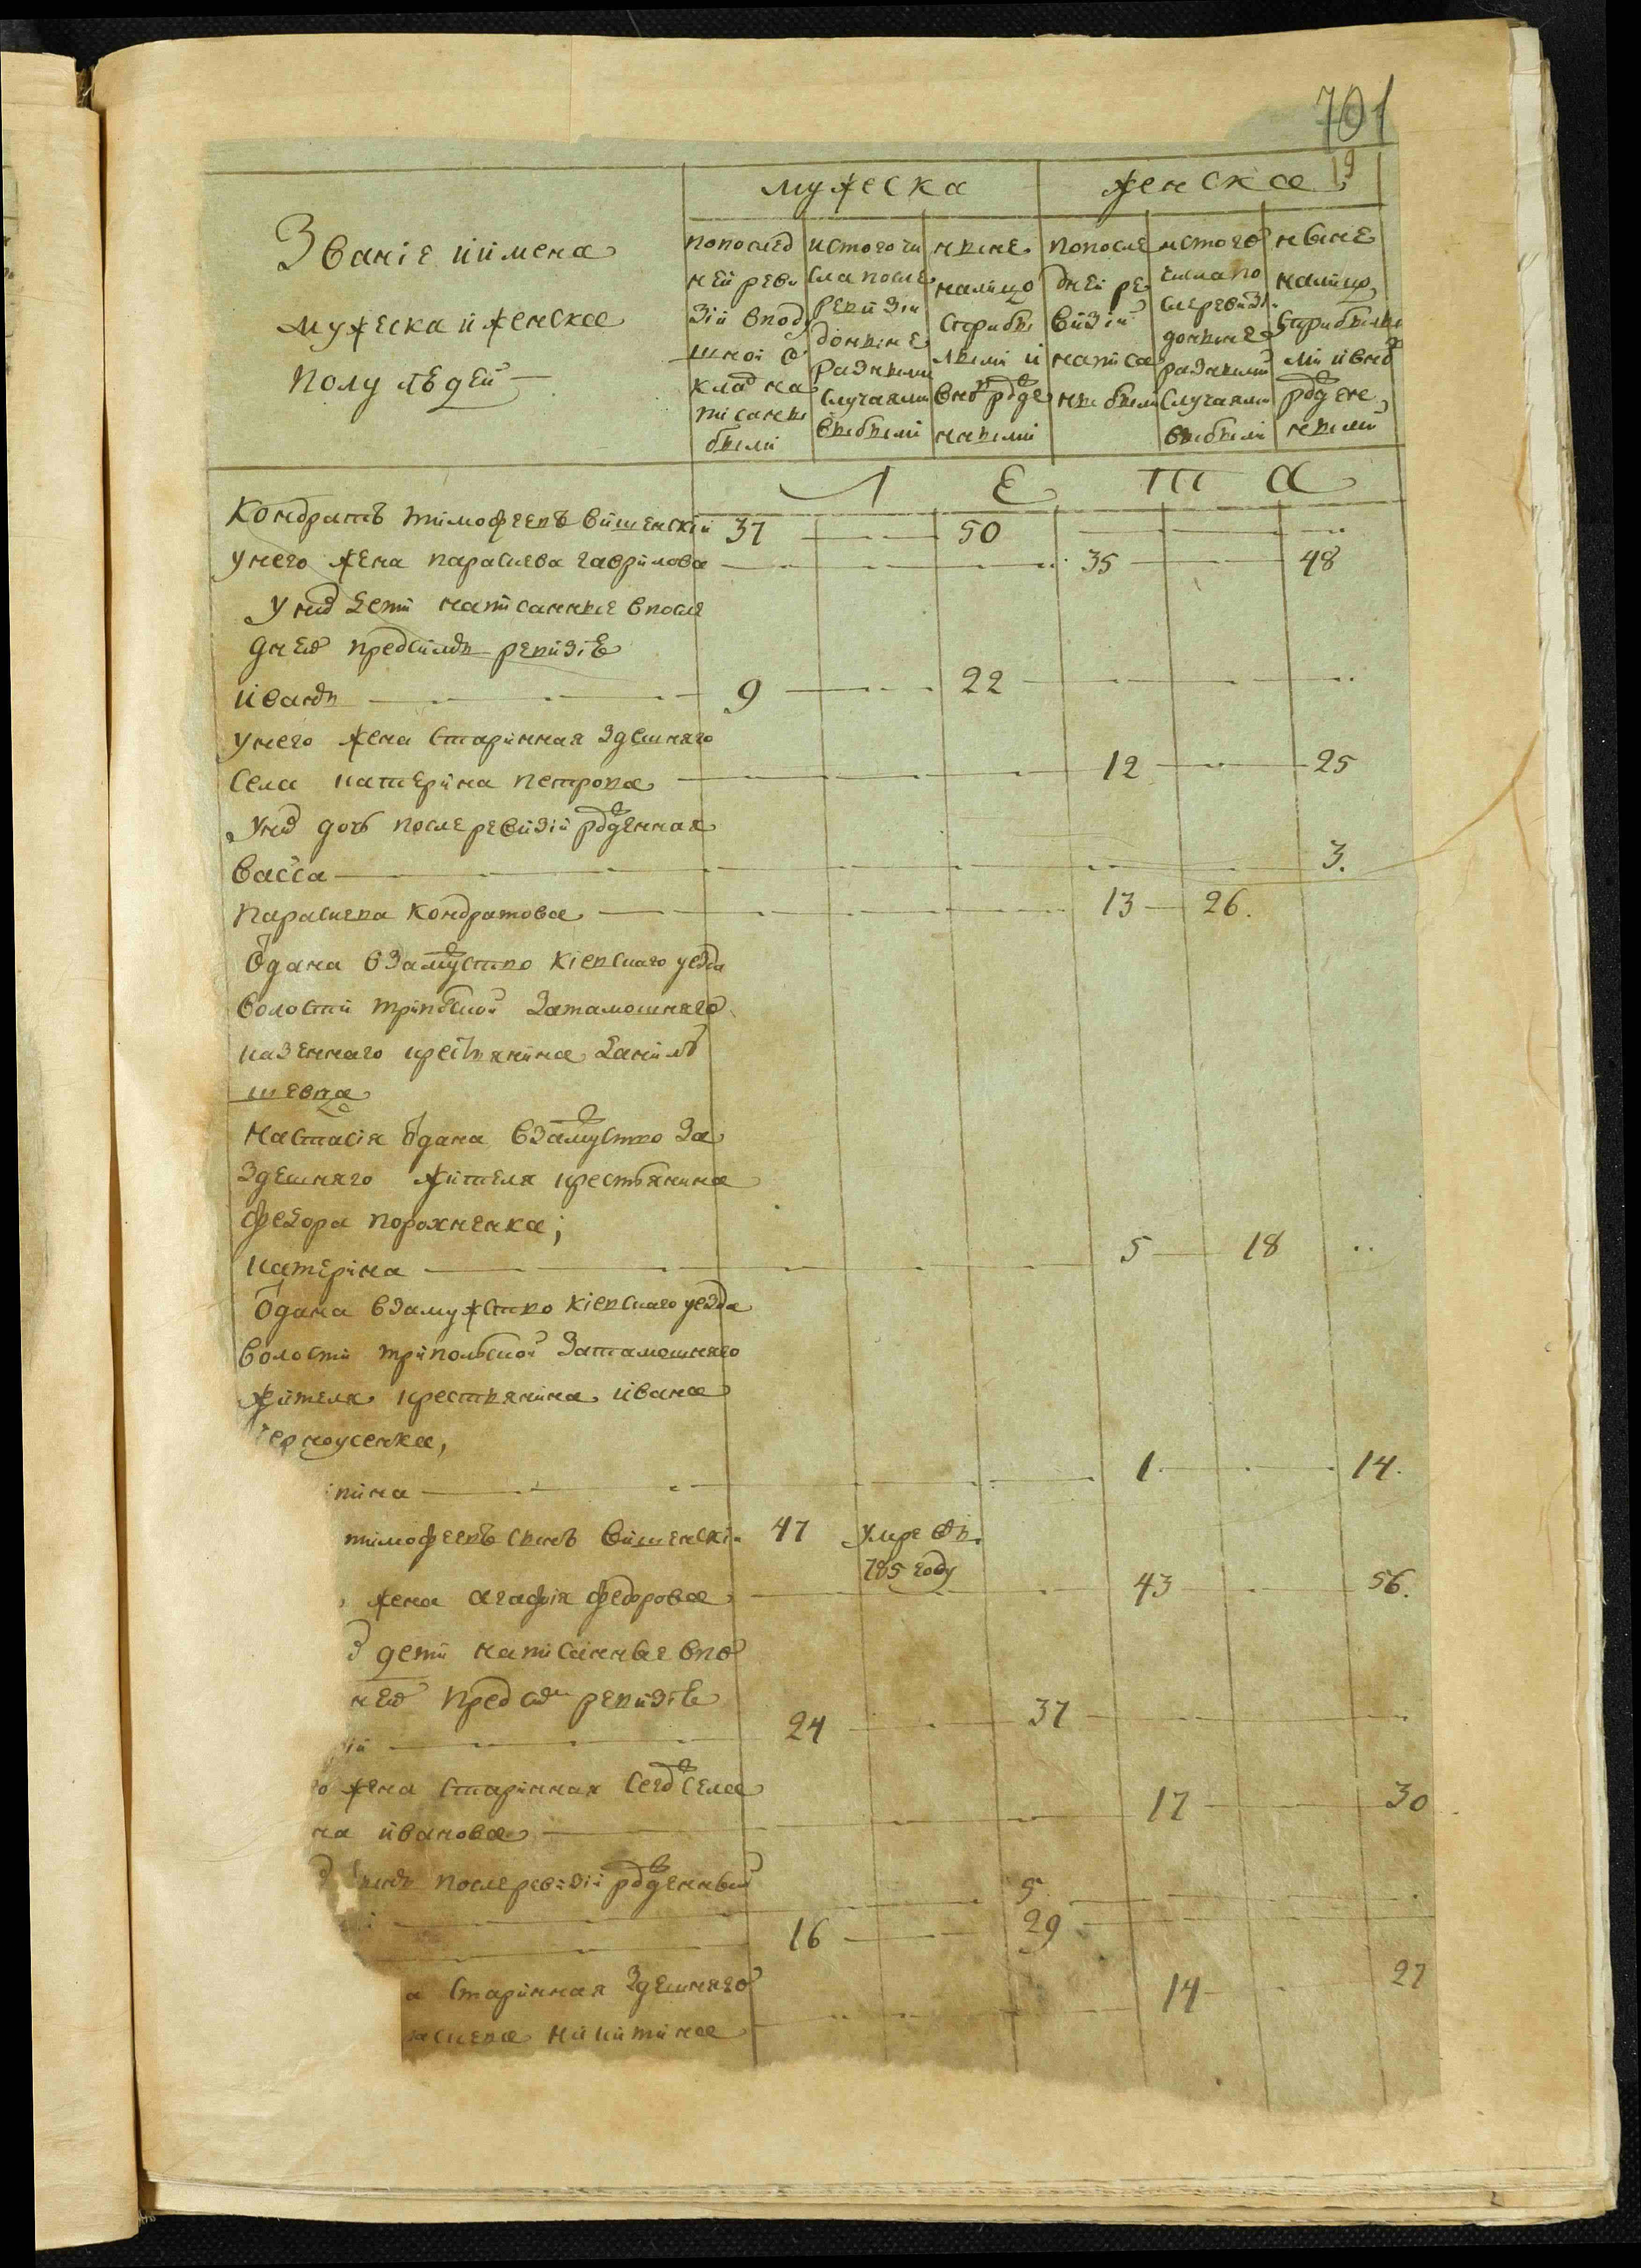 701
19
Званіе и имена
мужеска и женска
полу людей
мужеска
женска
попослед
ней реви
зіи вподу
шной о
клад на
писаны
были
истого чи
сла после
ревизіи
доныне
разными
случаями
выбыли
ныне
налицо
старыбы
лыми и
вновь рожде
ными
попосле
дней ре
визіи
написа
ны были
истого
числа по
слеревизіи
доныне
разными
случаями
выбыли
ныне
налицо
старибылы
ми ивно
рожден
ными
Л Е Т А
Кондратъ тимофеевъ вишенскій 37 50
унего жена парасцева гаврилова 35 48
уних дети написанные впосле
дней предсимъ ревизіе
иванъ 9 22
унего жена старинная здешняго
села катерина петрова 12 25
уних дочь после ревизіи рожденная
васса 3.
парасцева кондратова 13 26.
отдана взамуство кіевскаго уезда
волости трипсской затамошняго
казеннаго крестянина данилы
шевца
настасія отдана взамуство за
здешняго жителя крестьянина
федора порохненка;
катерина 5 18
отдана взамужство кіевскаго уезда
волости трипольской затамошняго
жителя крестянина ивана
черноусенка,
пина 1. 14.
тимофеевъ сынъ вишенскі 47 умре въ
785 году
жена агафія федорова 43 56.
дети написанные впо
ней пред сим ревизіе
ій 24 37
о жена старинная сегож села
на иванова 17 30
сынъ после ревизіи рожденный
5
16 29
а старинная здешняго
расцева никитина 14 27